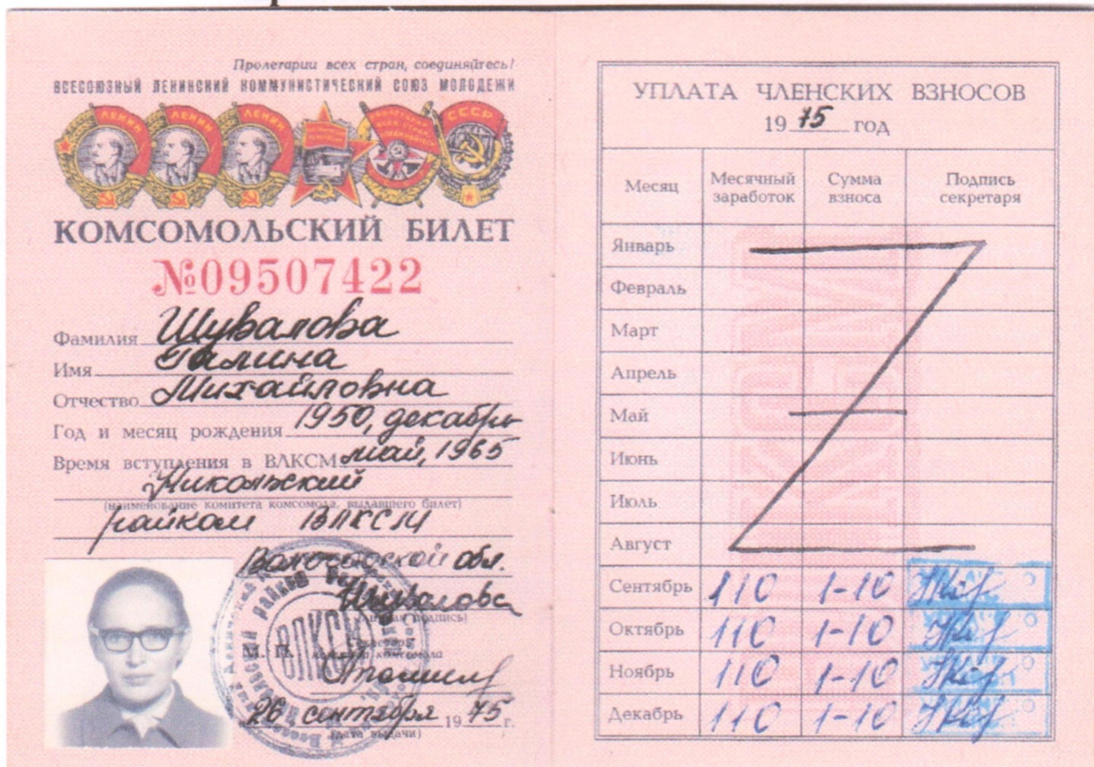 Пролетарии всех стран, соединяйтесь!
ВСЕСОЮЗНЫЙ ЛЕНИНСКИЙ КОММУНИСТИЧЕСКИЙ СОЮЗ МОЛОДЕЖИ
ЛЕНИН ЛЕНИН ЛЕНИН СССР
КОМСОМОЛЬСКИЙ БИЛЕТ
№09507422
Фамилия Шувалова
Имя Галина
Отчество Михайловна
Год и месяц рождения 1950, декабрь
Время вступления в ВЛКСМ май, 1965
Никольский
(наименование комитета комсомола, выдавшего билет)
райком ВЛКСМ
Вологодской обл.
Шувалова
(личная подпись)
М. П. Секретарь
комитета комсомола
ВЛКСМ
26 сентября 1975 г.
(дата выдачи)
УПЛАТА ЧЛЕНСКИХ ВЗНОСОВ
1975 год
Месяц Месячный заработок Сумма взноса Подпись секретаря
Январь
Февраль
Март
Апрель
Май
Июнь
Июль
Август
Сентябрь 110 1-10
Октябрь 110 1-10
Ноябрь 110 1-10
Декабрь 110 1-10